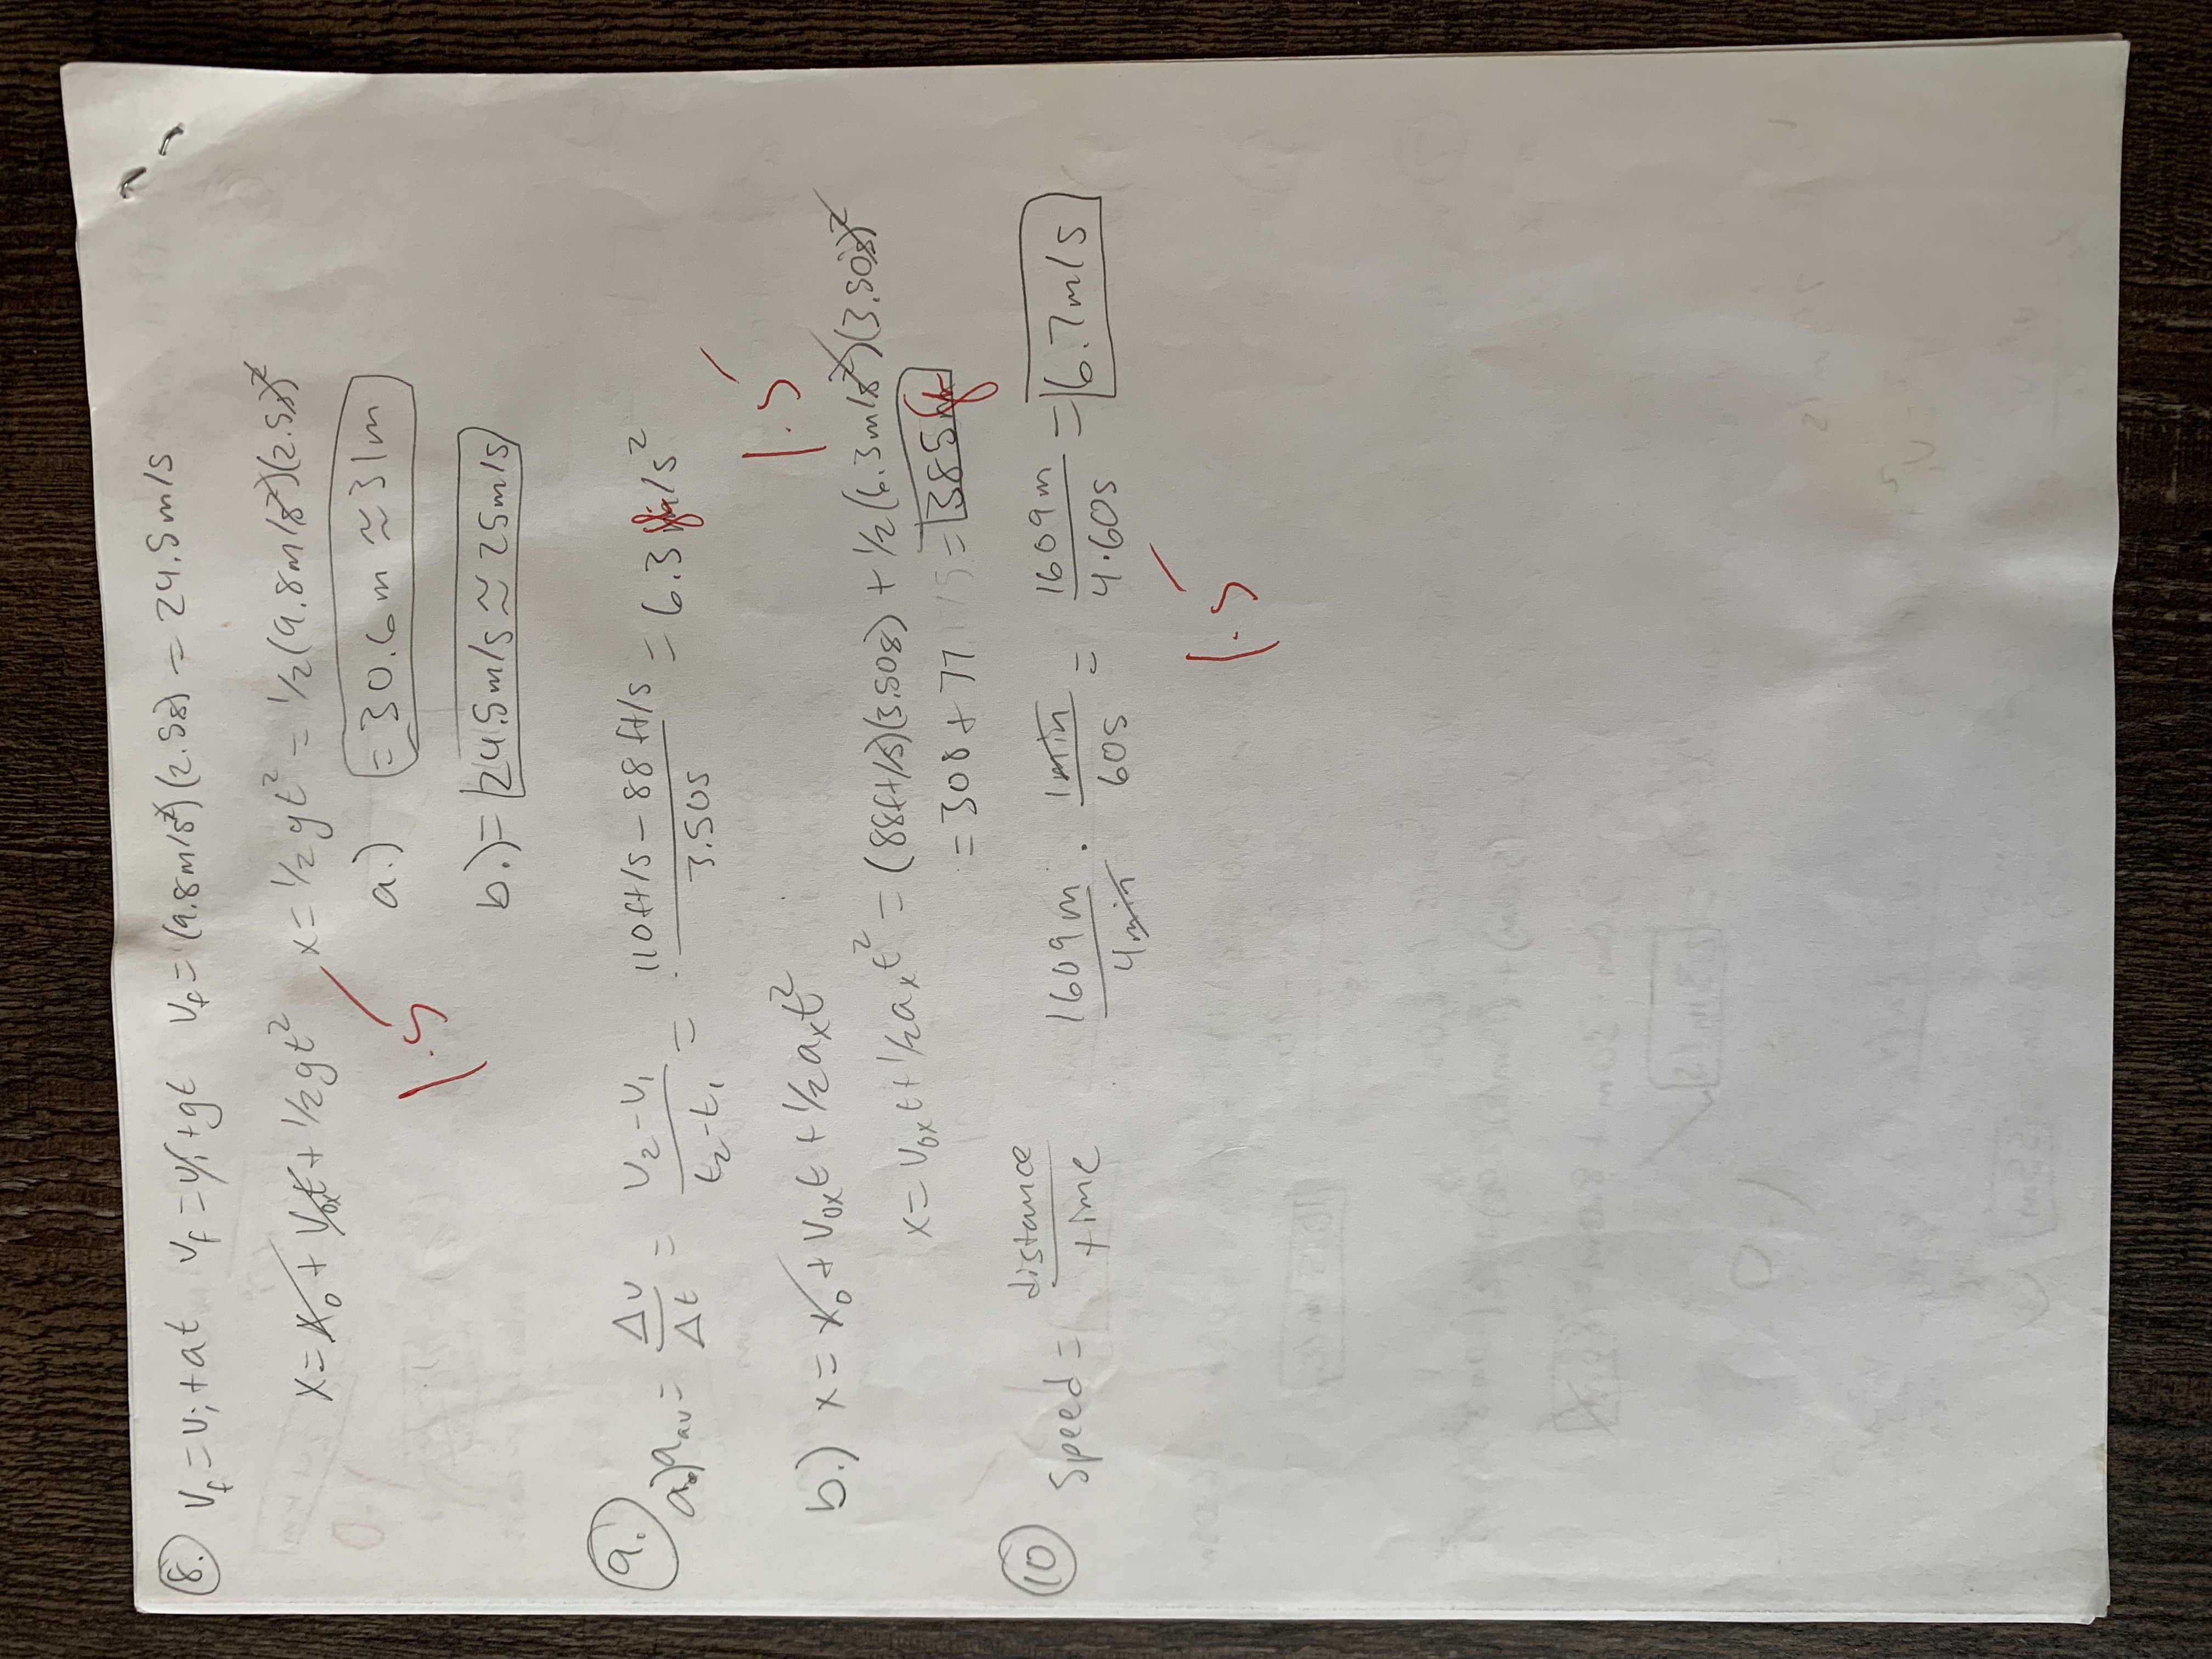 8. Vf = Vi + at Vf = Vi + gt Vf = (9.8m/s²)(2.5s) = 24.5m/s
x = x₀ + V₀ₓt + 1/2gt² x = 1/2gt² = 1/2(9.8m/s²)(2.5s)²
a.) = 30.6m ≈ 31m
1.5
b.) = 24.5m/s ≈ 25m/s
9.
a.) aav = Δv/Δt = (V2 - V1)/(t2 - t1) = (110ft/s - 88ft/s)/3.50s = 6.3 ft/s²
1.5
b.) x = x₀ + V₀ₓt + 1/2aₓt²
x = V₀ₓt + 1/2aₓt² = (88ft/s)(3.50s) + 1/2(6.3m/s²)(3.50s)²
= 308 + 77 = 385 ft
10 Speed = distance/time 1609m/4min · 1min/60s = 1609m/4·60s = 6.7m/s
1.5